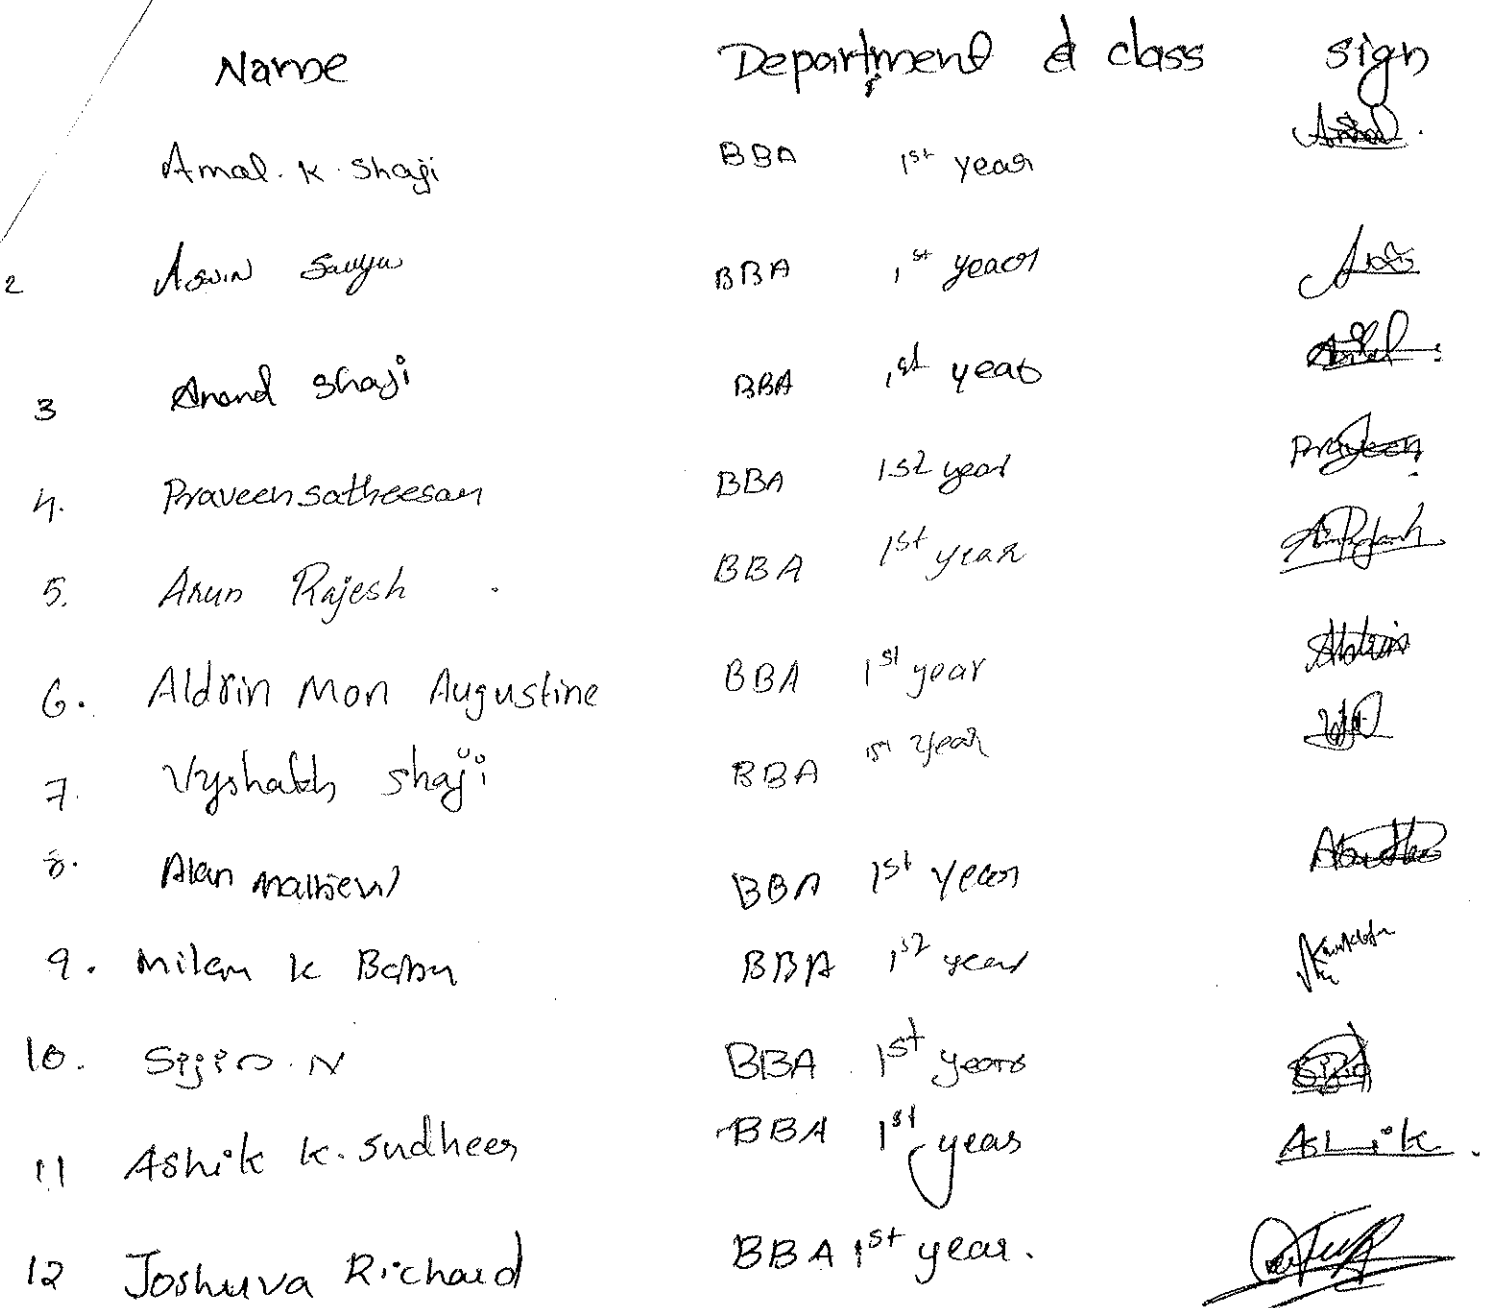 Name Department & class sign
Amal. K. Shaji BBA 1st year
2 Aswin BBA 1st year
3 Anand Shaji BBA 1st year
4. Praveen satheesan BBA 1st year Praveen
5. Arun Rajesh BBA 1st year
6. Aldrin Mon Augustine BBA 1st year
7. Vyshakh Shaji BBA 1st year
8. Alan Mathew BBA 1st year
9. Milan K Babu BBA 1st year
10. Sijin. N BBA 1st year
11 Ashik K. Sudheer BBA 1st year Ashik.
12 Joshuva Richard BBA 1st year.